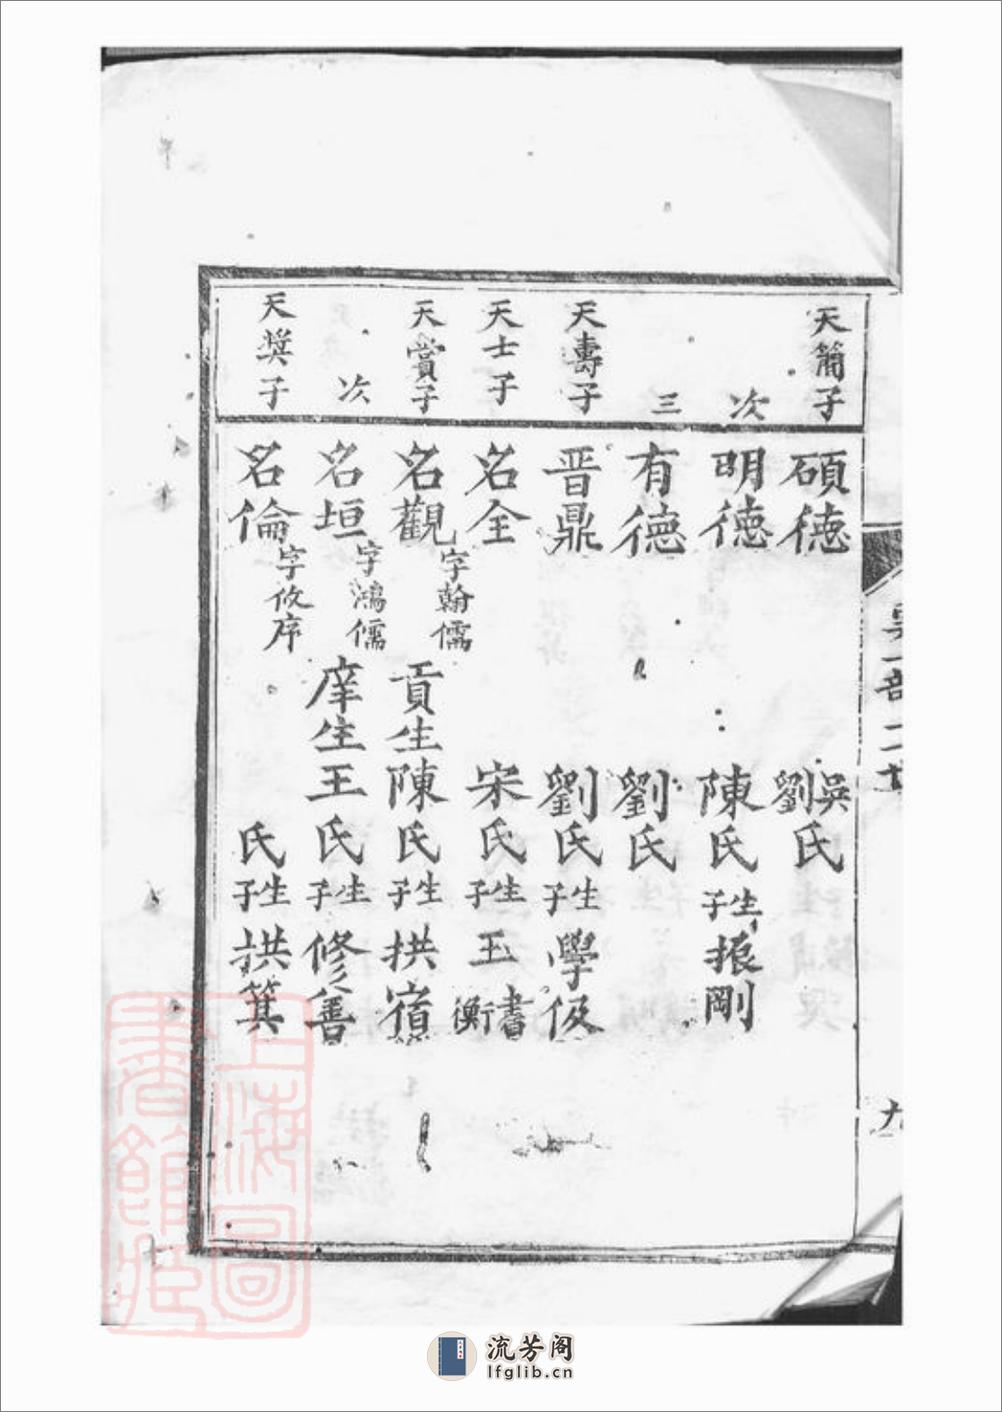 天簡子 碩德 吳劉氏
次 明德 陳氏 生子振剛
三 有德 劉氏
天壽子 晋鼎 劉氏 生子學伋
天士子 名全 宋氏 生子玉書衡
天賞子 名觀 字翰儒 貢生陳氏 生子拱宿
次 名垣 字鴻儒 庠生王氏 生子修善
天奨子 名倫 字攸序 氏 生子拱箕
九
上海圖書館藏
流芳阁
lfglib.cn